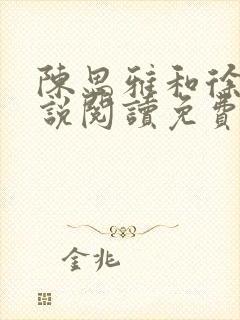 陳思雅和徐
說閱讀免費
金兆